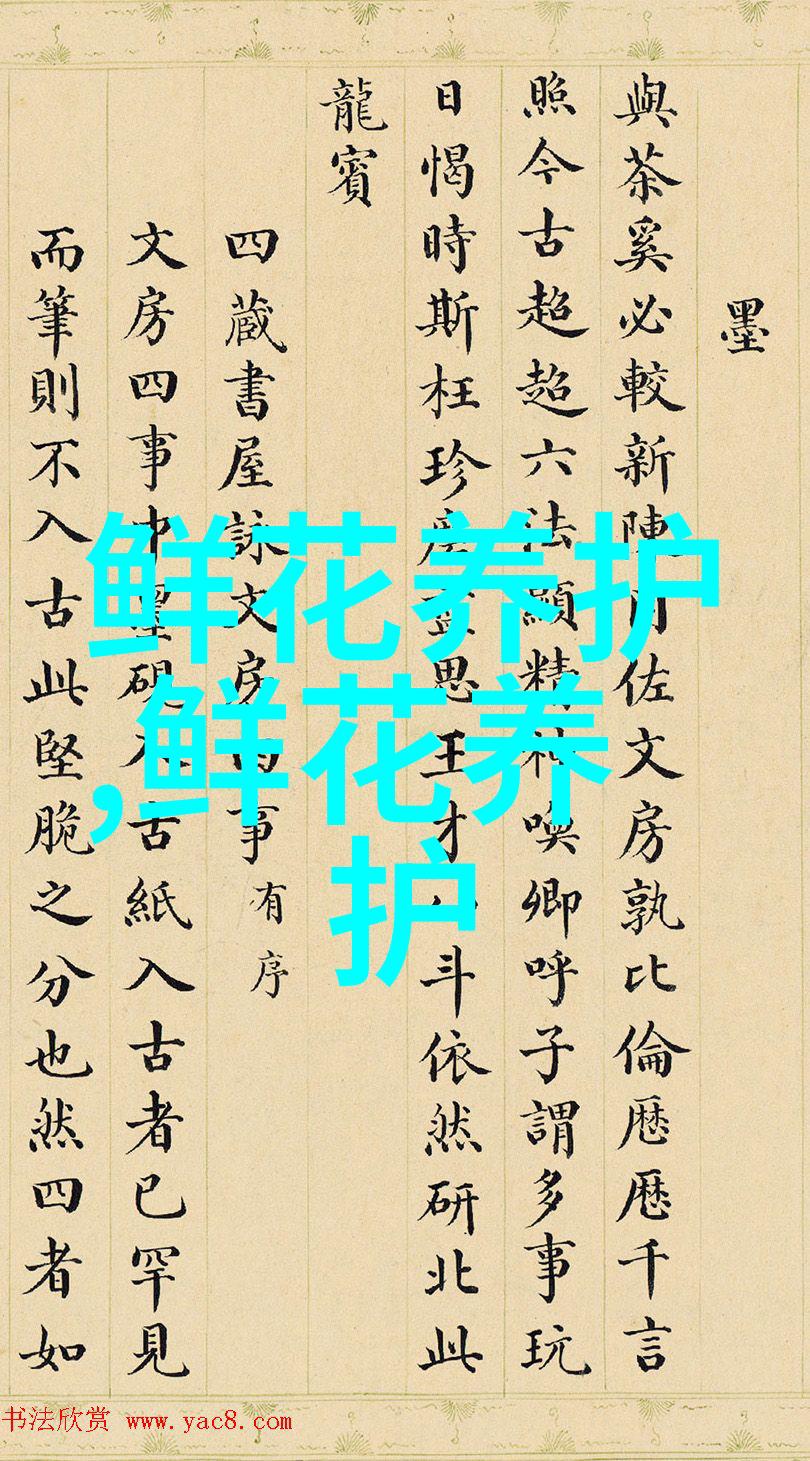 墨
與茶奚必較新陳用佐文房孰比倫歷歷千言
照今古超超六法顯精神喚卿呼子謂多事玩
日愒時斯枉珍座思王才斗依然研北此
龍賓
四藏書屋詠文房四事有序
文房四事中墨硯入古紙入古者已罕見
而筆則不入古此堅脆之分也然四者如
鲜花养护
,鲜花养
护
书法欣赏 www.yac8.com